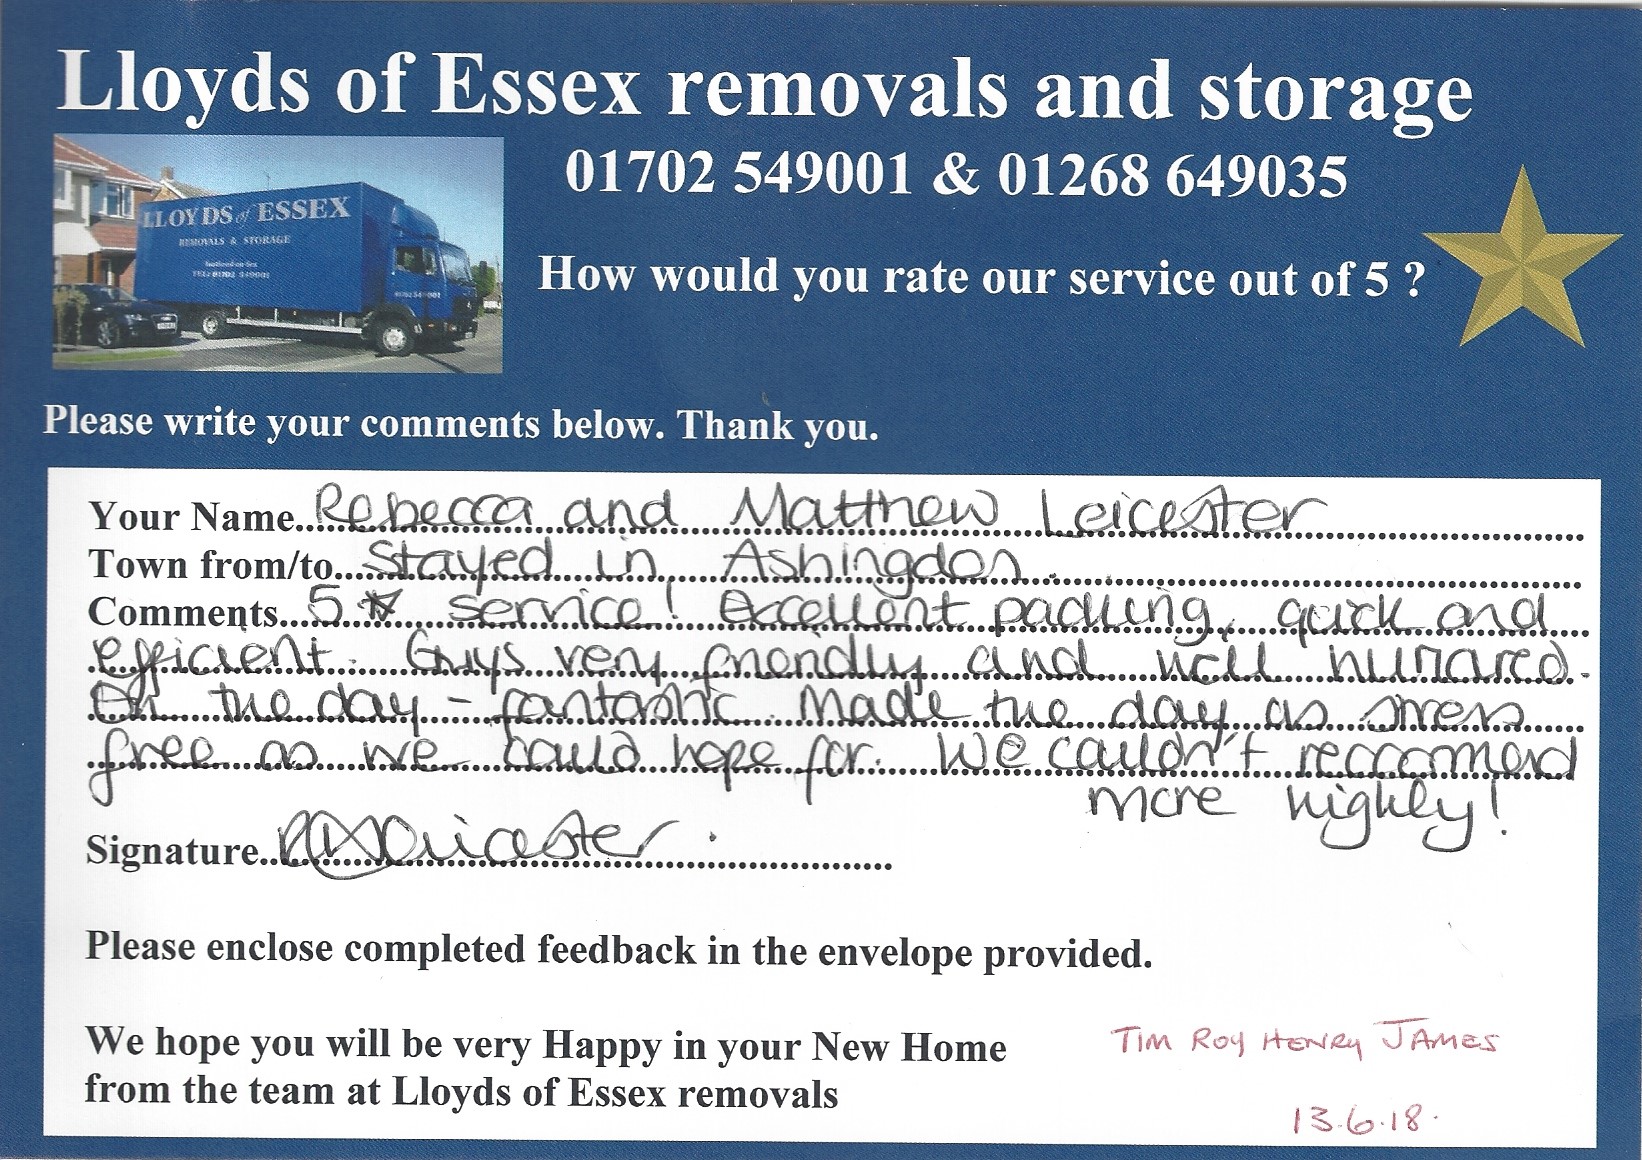 Lloyds of Essex removals and storage
01702 549001 & 01268 649035
LLOYDS of ESSEX
REMOVALS & STORAGE
TEL: 01702 549001
01702 549001
How would you rate our service out of 5 ?
Please write your comments below. Thank you.
Your Name Rebecca and Matthew Leicester
Town from/to Stayed in Ashingdon.
Comments 5 ☆ service! Excellent packing, quick and
efficient. Guys very friendly and well humared.
On the day - fantastic. Made the day as stress
free as we could hope for. We couldn't reccomend
more highly!
Signature RLeicester.
Please enclose completed feedback in the envelope provided.
We hope you will be very Happy in your New Home
from the team at Lloyds of Essex removals
TIM ROY HENRY JAMES
13.6.18.